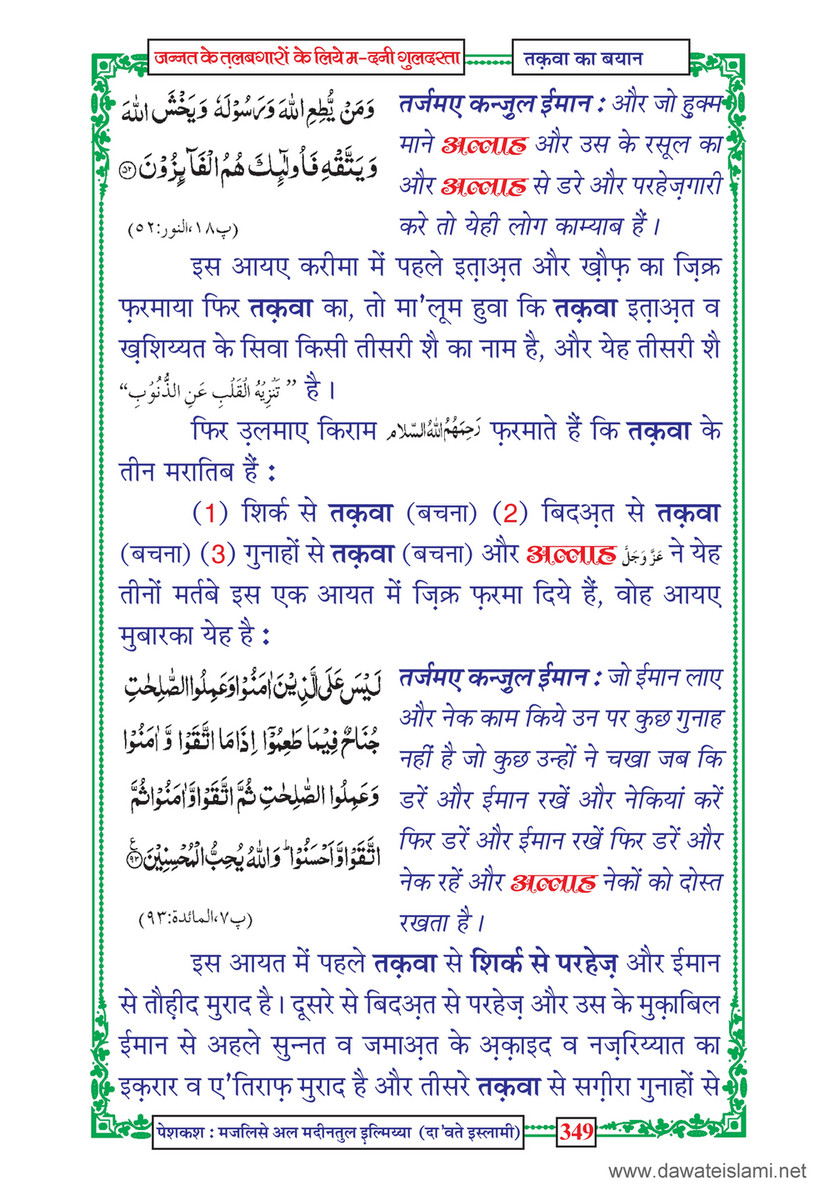 जन्नत के त़लबगारों के लिये म-दनी गुलदस्ता
तक़वा का बयान
وَمَنْ يُّطِعِ اللّٰهَ وَرَسُوْلَهٗ وَيَخْشَ اللّٰهَ
وَيَتَّقْهِ فَاُولٰٓئِكَ هُمُ الْفَآئِزُوْنَ ﴿۵۲﴾
(پ۱۸،النور:۵۲)
तर्जमए कन्ज़ुल ईमान : और जो हुक्म
माने अल्लाह और उस के रसूल का
और अल्लाह से डरे और परहेज़गारी
करे तो येही लोग काम्याब हैं ।
इस आयए करीमा में पहले इत़ाअ़त और ख़ौफ़ का ज़िक्र
फ़रमाया फिर तक़वा का, तो मा'लूम हुवा कि तक़वा इत़ाअ़त व
ख़शिय्यत के सिवा किसी तीसरी शै का नाम है, और येह तीसरी शै
”تَنْزِيْهُ الْقَلْبِ عَنِ الذُّنُوْبِ“ है ।
फिर उ़लमाए किराम رَحِمَهُمُ اللّٰهُ السَّلَام फ़रमाते हैं कि तक़वा के
तीन मरातिब हैं :
(1) शिर्क से तक़वा (बचना) (2) बिदअ़त से तक़वा
(बचना) (3) गुनाहों से तक़वा (बचना) और अल्लाह عَزَّ وَجَلَّ ने येह
तीनों मर्तबे इस एक आयत में ज़िक्र फ़रमा दिये हैं, वोह आयए
मुबारका येह है :
لَيْسَ عَلَى الَّذِيْنَ اٰمَنُوْا وَعَمِلُوا الصّٰلِحٰتِ
جُنَاحٌ فِيْمَا طَعِمُوْٓا اِذَا مَا اتَّقَوْا وَّاٰمَنُوْا
وَعَمِلُوا الصّٰلِحٰتِ ثُمَّ اتَّقَوْا وَّاٰمَنُوْا ثُمَّ
اتَّقَوْا وَّاَحْسَنُوْا ؕ وَاللّٰهُ يُحِبُّ الْمُحْسِنِيْنَ ﴿۹۳﴾ ع
(پ۷،المائدة:۹۳)
तर्जमए कन्ज़ुल ईमान : जो ईमान लाए
और नेक काम किये उन पर कुछ गुनाह
नहीं है जो कुछ उन्हों ने चखा जब कि
डरें और ईमान रखें और नेकियां करें
फिर डरें और ईमान रखें फिर डरें और
नेक रहें और अल्लाह नेकों को दोस्त
रखता है ।
इस आयत में पहले तक़वा से शिर्क से परहेज़ और ईमान
से तौह़ीद मुराद है । दूसरे से बिदअ़त से परहेज़ और उस के मुक़ाबिल
ईमान से अहले सुन्नत व जमाअ़त के अ़क़ाइद व नज़रिय्यात का
इक़रार व ए'तिराफ़ मुराद है और तीसरे तक़वा से सग़ीरा गुनाहों से
पेशकश : मजलिसे अल मदीनतुल इ़ल्मिय्या (दा'वते इस्लामी)
349
www.dawateislami.net